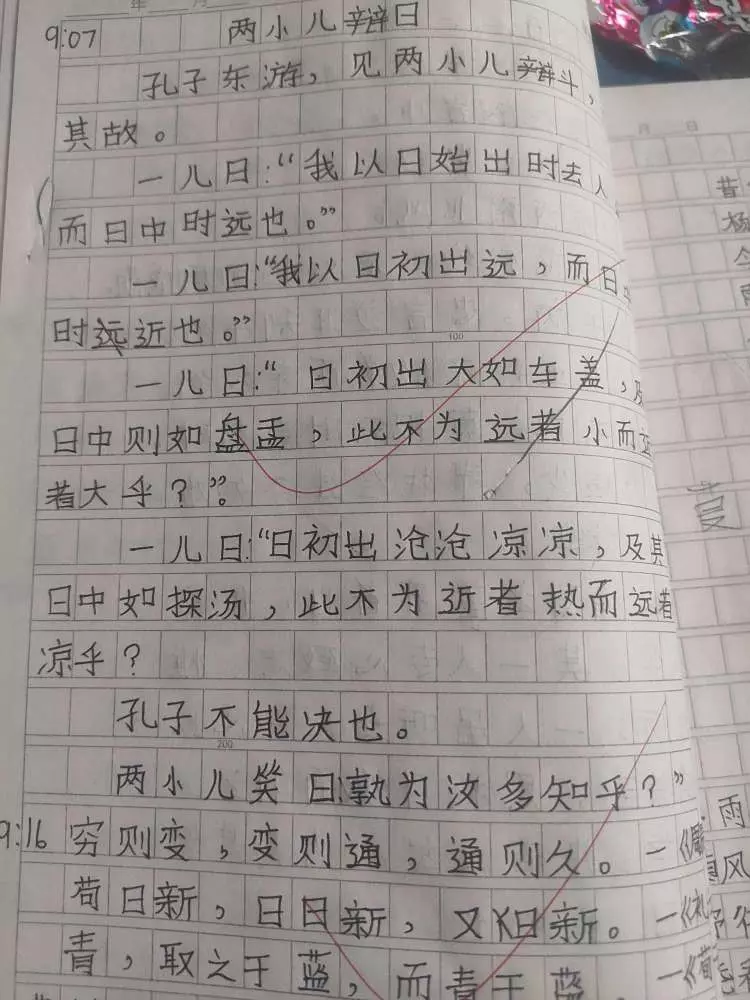 年 月
9:07 两小儿辩日
孔子东游，见两小儿辩斗，
其故。
一儿曰：“我以日始出时去人
而日中时远也。”
一儿曰：“我以日初出远，而日中
时远近也。”
一儿曰：“日初出大如车盖，及
日中则如盘盂，此不为远者小而近
着大乎？”。
一儿曰：“日初出沧沧凉凉，及其
日中如探汤，此不为近者热而远者
凉乎？
孔子不能决也。
100
200
两小儿笑曰：孰为汝多知乎？”
9:16 穷则变，变则通，通则久。—《周
苟日新，日日新，又日新。—《礼
青，取之于蓝，而青于蓝 —《荀
月 日
昔
杨
今
雨
风